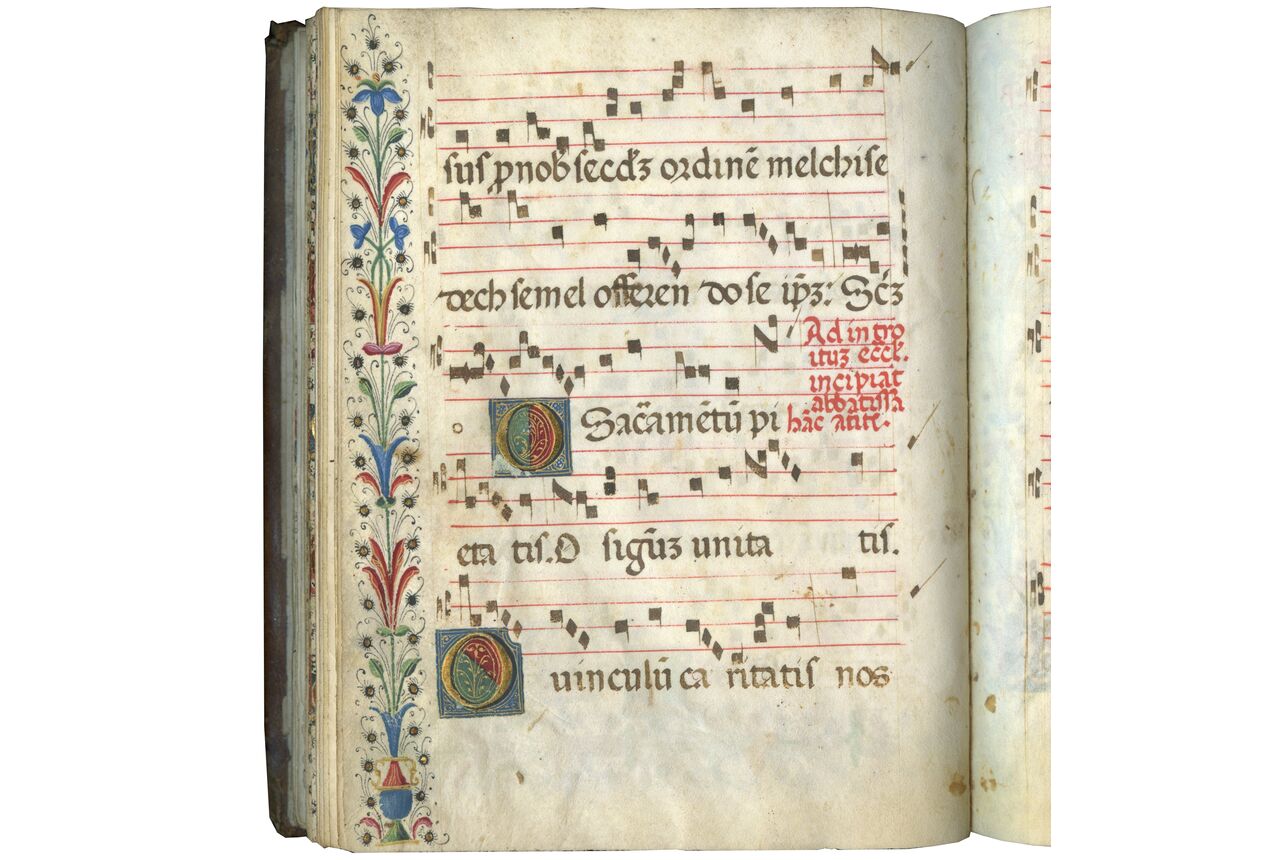 sus ꝓ nob̃ secd̃ꝫ ordinẽ melchise
dech semel offeren do se ip̃ꝫ: Sc̃ꝫ
Ad intro
ituꝫ eccl̃.
incipiat
abbatissa
hãc añte.
O Sac̃amẽtũ pi
eta tis. O sigñuꝫ unita tis.
O uinculũ ca ritatis nos